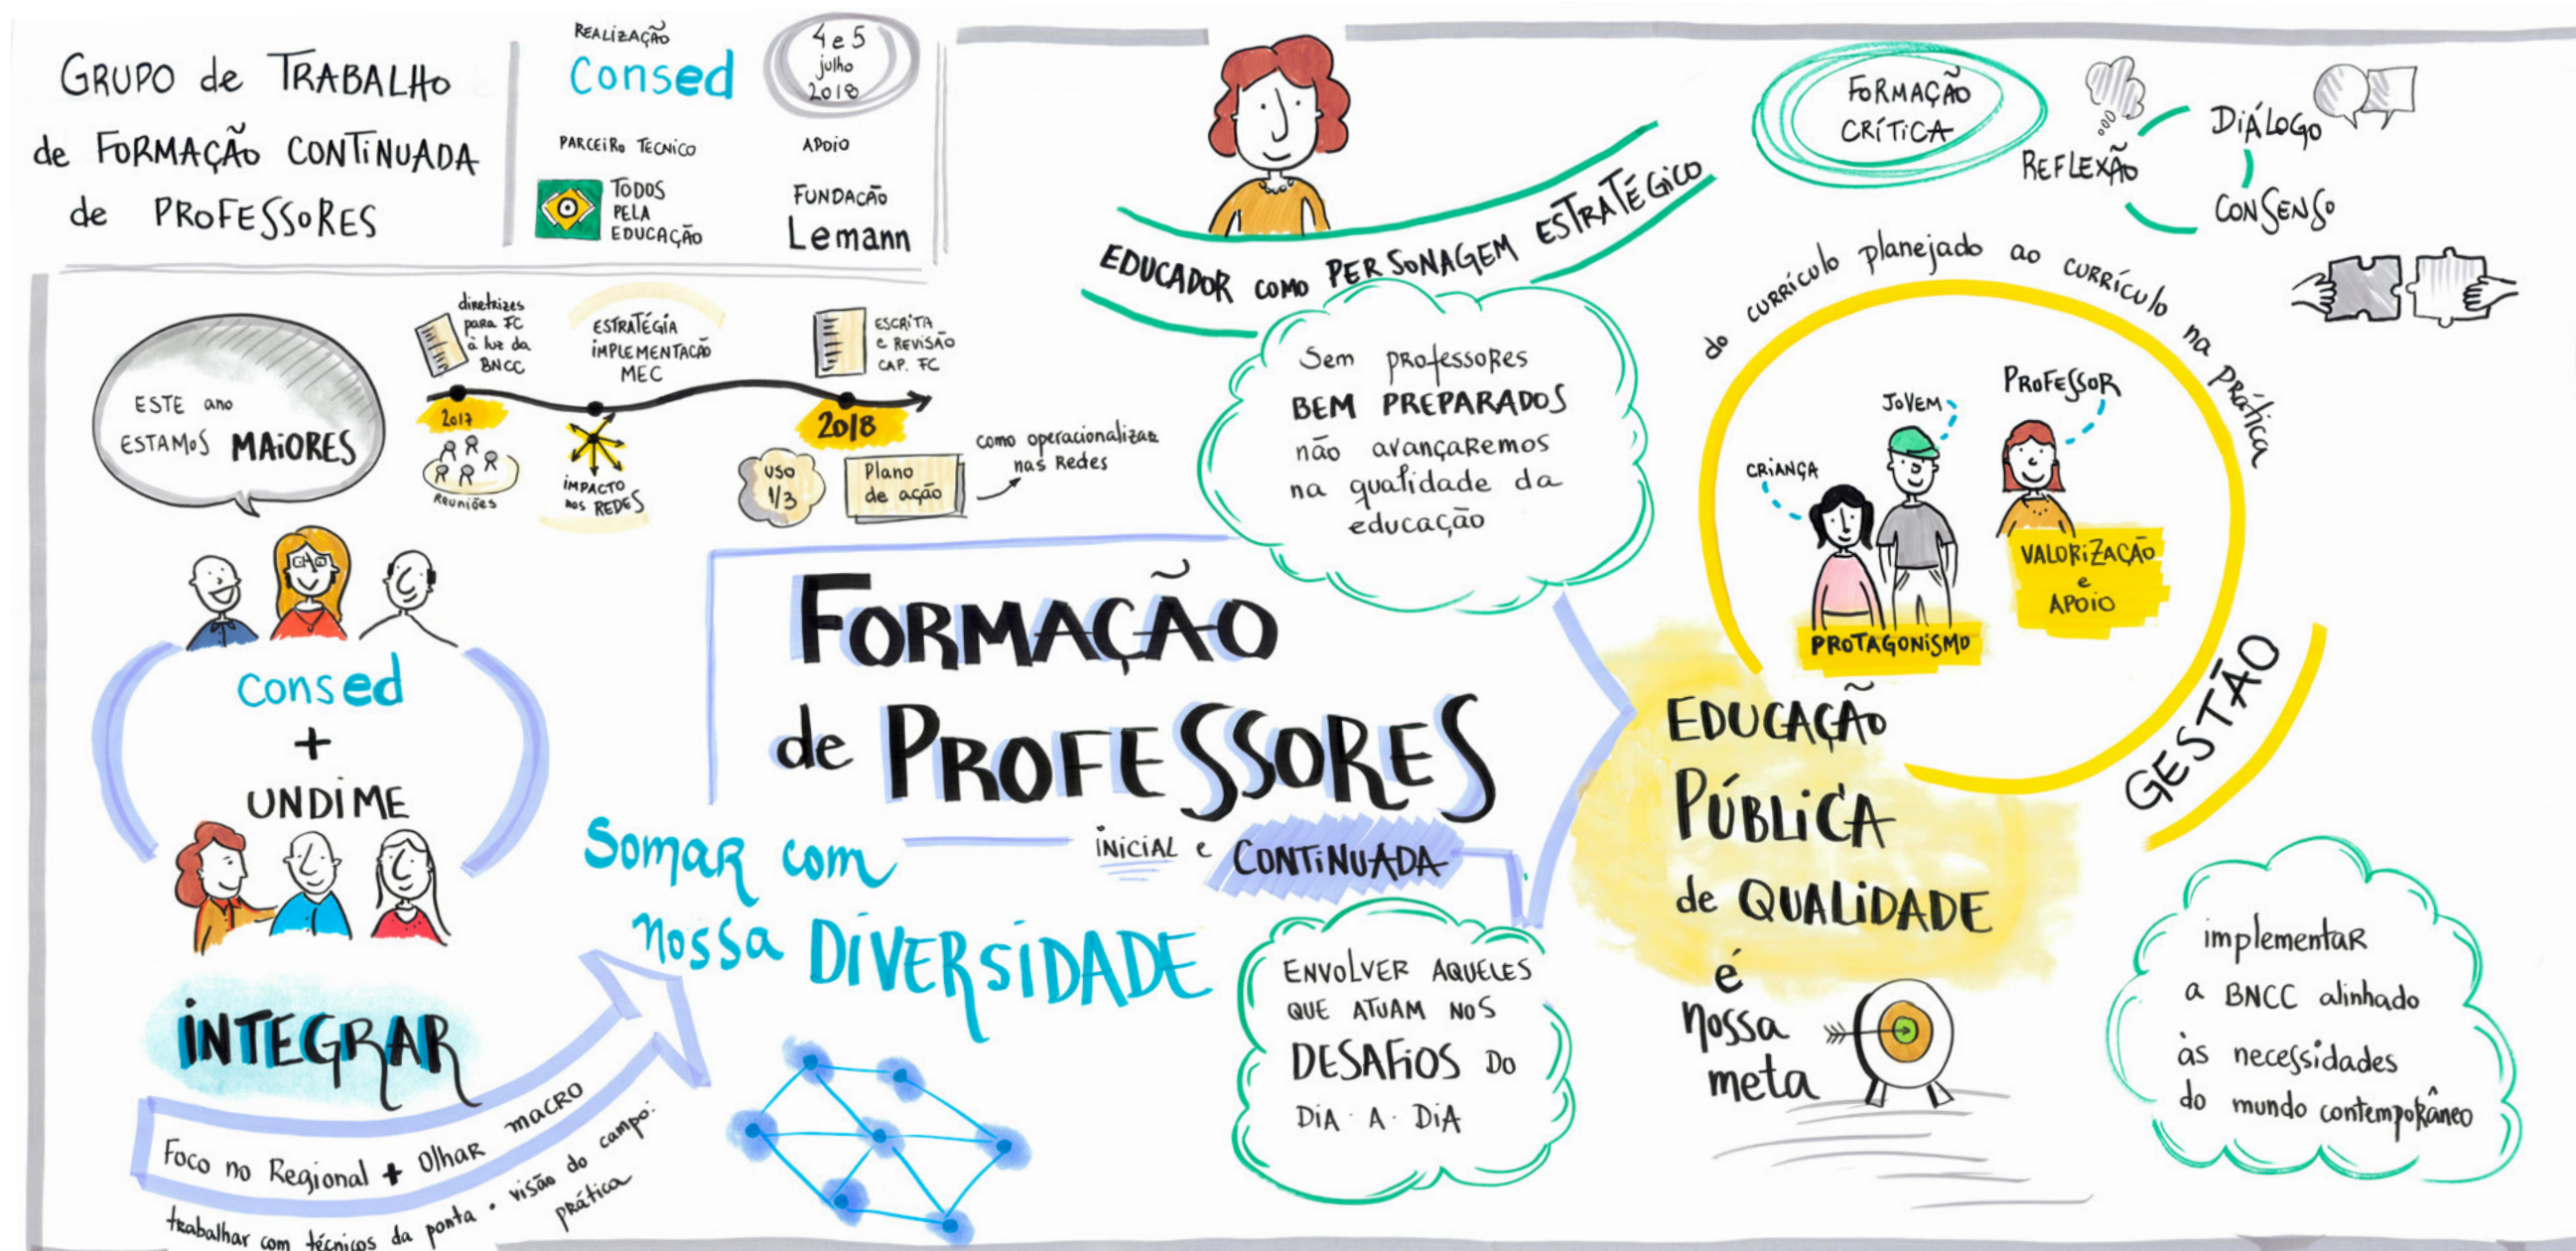 GRUPO de TRABALHO
de FORMAÇÃO CONTINUADA
de PROFESSORES
REALIZAÇÃO
Consed
4 e 5
julho
2018
PARCEIRO TECNICO
TODOS
PELA
EDUCAÇÃO
APOIO
FUNDACÃO
Lemann
ESTE ano
ESTAMOS MAIORES
diretrizes
para FC
à luz da
BNCC
2017
Reuniões
ESTRATÉGIA
IMPLEMENTACÃO
MEC
IMPACTO
nos REDES
ESCRITA
e REVISÃO
CAP. FC
2018
USO
1/3
Plano
de ação
como operacionalizar
nas Redes
consed
+
UNDIME
INTEGRAR
Foco no Regional + Olhar macro
trabalhar com técnicos da ponta • visão do campo:
prática
FORMAÇÃO
de PROFESSORES
INICIAL e CONTINUADA
Somar com
nossa DIVERSIDADE
EDUCADOR COMO PERSONAGEM ESTRATÉGICO
Sem professores
BEM PREPARADOS
não avançaremos
na qualidade da
educação
ENVOLVER AQUELES
QUE ATUAM NOS
DESAFIOS DO
DIA · A · DIA
FORMAÇÃO
CRÍTICA
REFLEXÃO
DIÁLOGO
CONSENSO
do currículo planejado ao currículo na prática
CRIANÇA
JOVEM
PROFESSOR
PROTAGONISMO
VALORIZAÇÃO
e
APOIO
GESTÃO
EDUCAÇÃO
PÚBLICA
de QUALIDADE
é
nossa
meta
implementar
a BNCC alinhado
às necessidades
do mundo contemporâneo